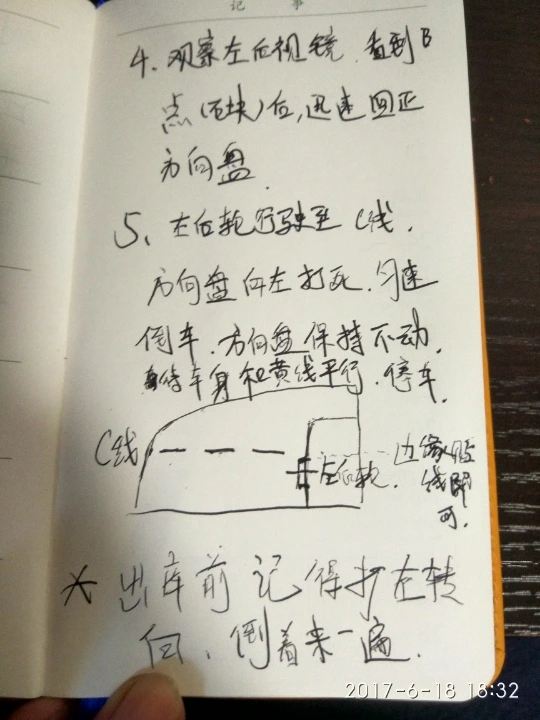 记 事
4、观察左后视镜,看到B
点(石块)后,迅速回正
方向盘.
5、左后轮行驶至C线,
方向盘向左打死.匀速
倒车.方向盘保持不动.
待车身和黄线平行.停车.
C线
左后轮.
边缘
线即
可.
* 出库前记得打左转
向、倒着来一遍.
2017-6-18 18:32